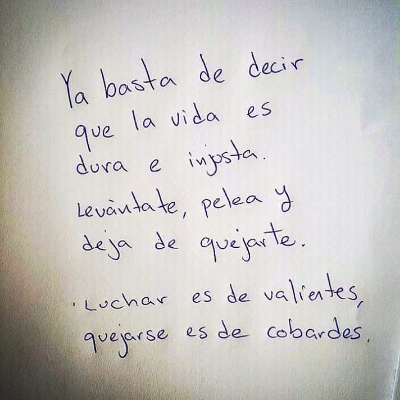 Ya basta de decir
que la vida es
dura e injusta.
Levàntate, pelea y
deja de quejarte.
. Luchar es de valientes,
quejarse es de cobardes.